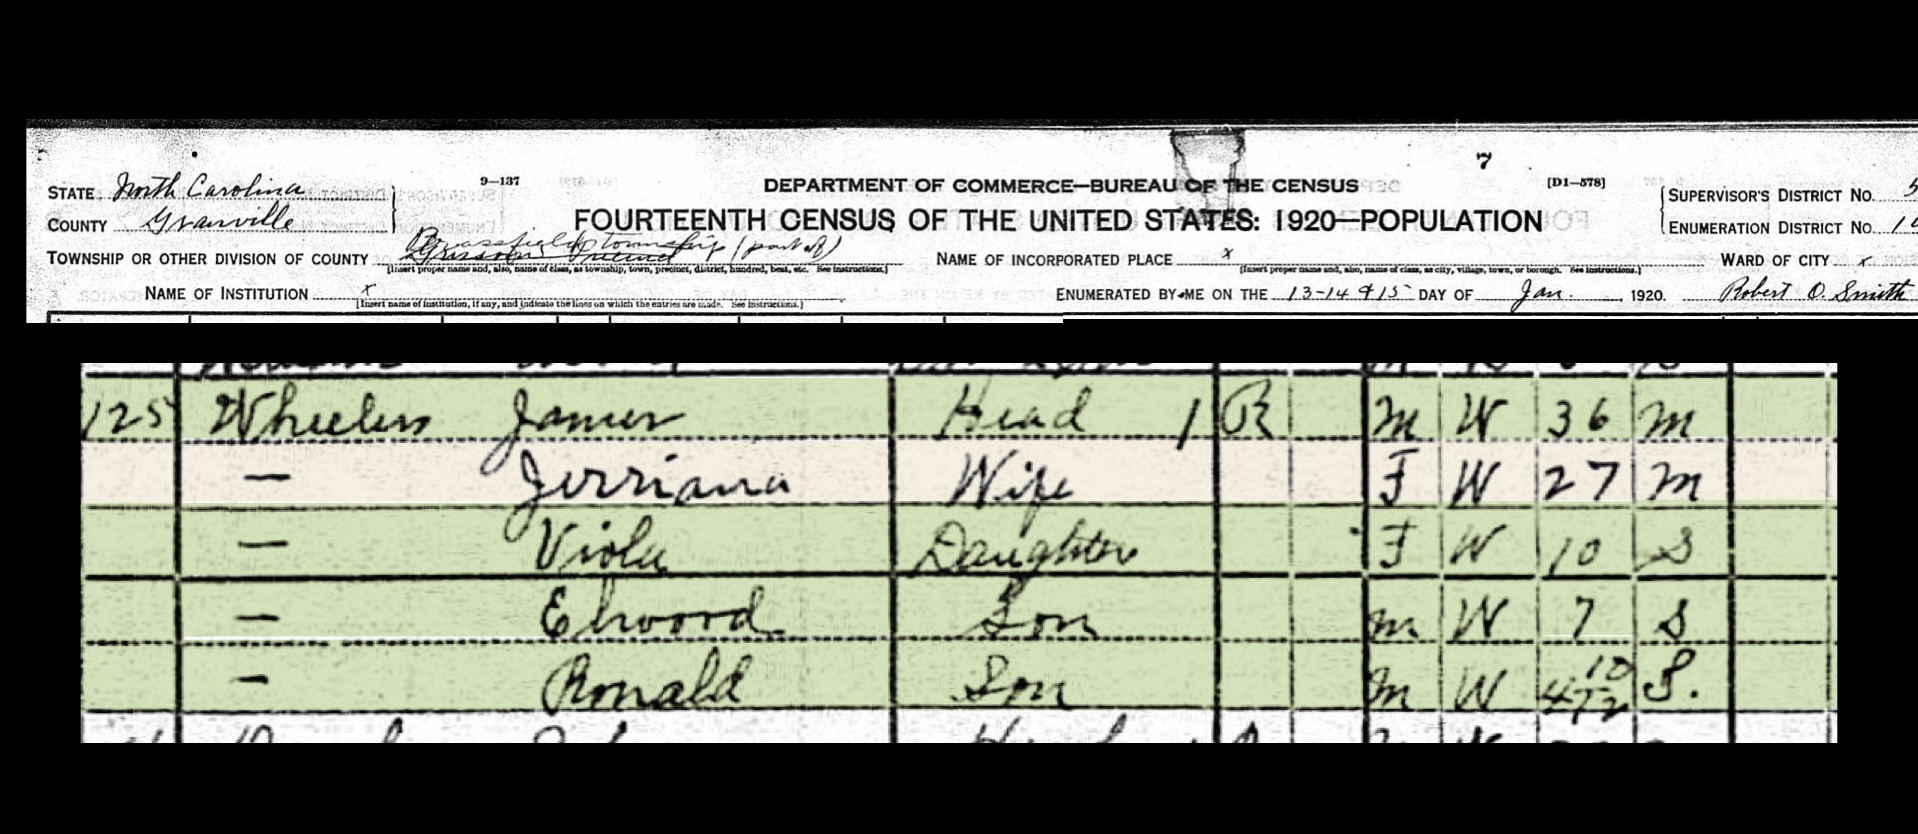 7
STATE North Carolina
9–137
DEPARTMENT OF COMMERCE—BUREAU OF THE CENSUS
[D1–578]
SUPERVISOR'S DISTRICT NO. 5
COUNTY Granville
FOURTEENTH CENSUS OF THE UNITED STATES: 1920—POPULATION
ENUMERATION DISTRICT NO.
Brassfield township (part of)
TOWNSHIP OR OTHER DIVISION OF COUNTY Grissom Precinct
NAME OF INCORPORATED PLACE x
WARD OF CITY x
[Insert proper name and, also, name of class, as township, town, precinct, district, hundred, beat, etc. See instructions.]
[Insert proper name and, also, name of class, as city, village, town, or borough. See instructions.]
NAME OF INSTITUTION x
ENUMERATED BY ME ON THE 13-14 & 15 DAY OF Jan., 1920. Robert O. Smith
[Insert name of institution, if any, and indicate the lines on which the entries are made. See instructions.]
125 Wheelers James Head 1 R M W 36 M
— Jerriana Wife F W 27 M
— Viola Daughter F W 10 S
— Elwood Son M W 7 S
— Ronald Son M W 4 10/12 S.